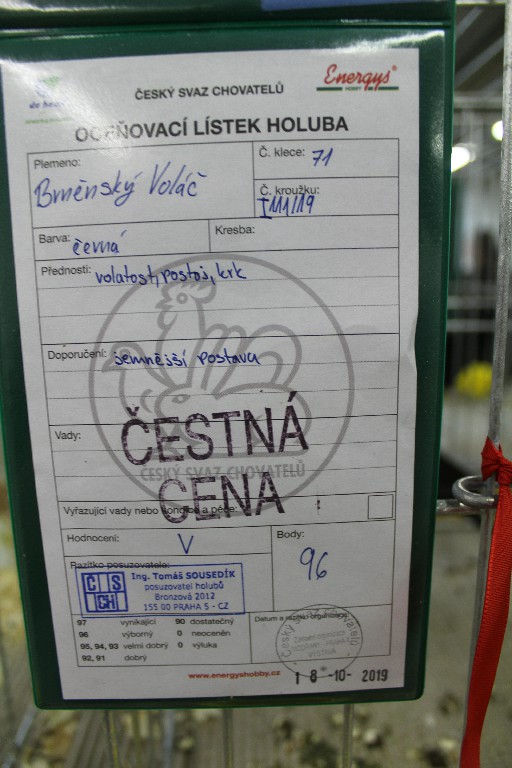 Energys®
HOBBY
ČESKÝ SVAZ CHOVATELŮ
OCEŇOVACÍ LÍSTEK HOLUBA
Plemeno: Brněnský Voláč
Č. klece: 71
Č. kroužku: I111/19
Barva: černá
Kresba:
Přednosti: volatost, postoj, krk
Doporučení: jemnější postavu
Vady:
ČESTNÁ
ČESKÝ SVAZ CHOVATELŮ
CENA
Vyřazující vady nebo kondice a péče:
Hodnocení: V
Body: 96
Razítko posuzovatele:
CSCH
Ing. Tomáš SOUSEDÍK
posuzovatel holubů
Bronzová 2012
155 00 PRAHA 5 - CZ
97 vynikající 90 dostatečný
96 výborný 0 neoceněn
95, 94, 93 velmi dobrý 0 výluka
92, 91 dobrý
Datum a
Český svaz chovatelů
VÝSTAVA
18 -10- 2019
www.energyshobby.cz